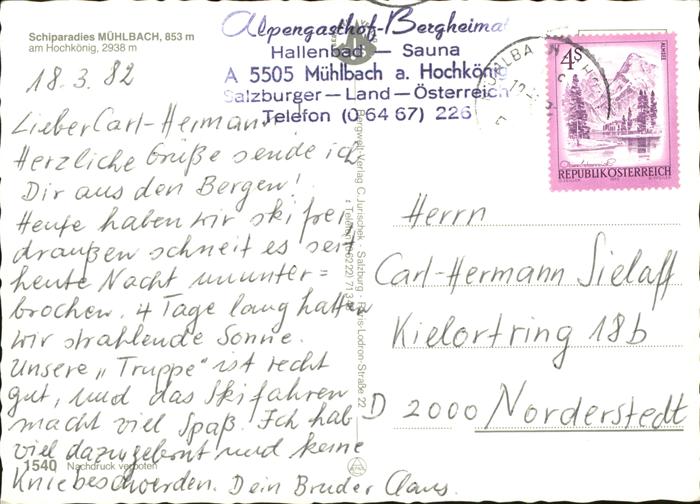 Schiparadies MÜHLBACH, 853 m
am Hochkönig, 2938 m
Alpengasthof-Bergheimat
Hallenbad — Sauna
A 5505 Mühlbach a. Hochkönig
Salzburger — Land — Österreich
Telefon (0 64 67) 226
18.3.82
Lieber Carl-Hermann!
Herzliche Grüße sende ich
Dir aus den Bergen!
Heute haben wir skifrei
draußen schneit es seit
heute Nacht ununter=
brochen. 4 Tage lang hatten
wir strahlende Sonne.
Unsere „Truppe" ist recht
gut, und das Skifahren
macht viel Spaß. Ich hab
viel dazugelernt und keine
Kniebeschwerden. Dein Bruder Claus.
1540 Nachdruck verboten
Bergwelt-Verlag C. Jurischek - Salzburg
Paris-Lodron-Straße 22
4 S
ALMSEE
Oberösterreich
REPUBLIK ÖSTERREICH
Herrn
Carl-Hermann Sielaff
Kielortring 18b
D 2000 Norderstedt